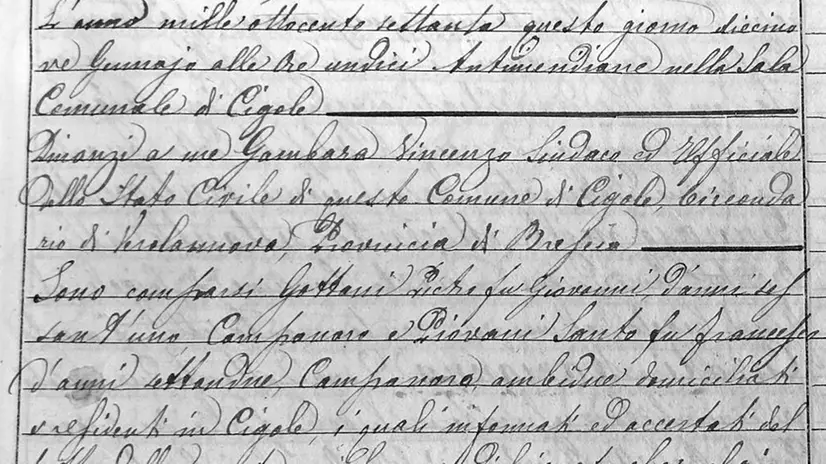 L'anno mille ottocento settanta questo giorno diecino
ve Gennajo alle ore undici Antimeridiane nella Sala
Comunale di Cigole
Dinanzi a me Gambara Vincenzo Sindaco ed Ufficiale
dello Stato Civile di questo Comune di Cigole, Circonda
rio di Verolanuova, Provincia di Brescia
Sono comparsi Gottani fu Giovanni, d'anni ses
sant'uno Camparo e Piovani Santo fu Francesco
d'anni settandue, Camparo, ambidue domiciliati
e residenti in Cigole, i quali informati ed accertati del